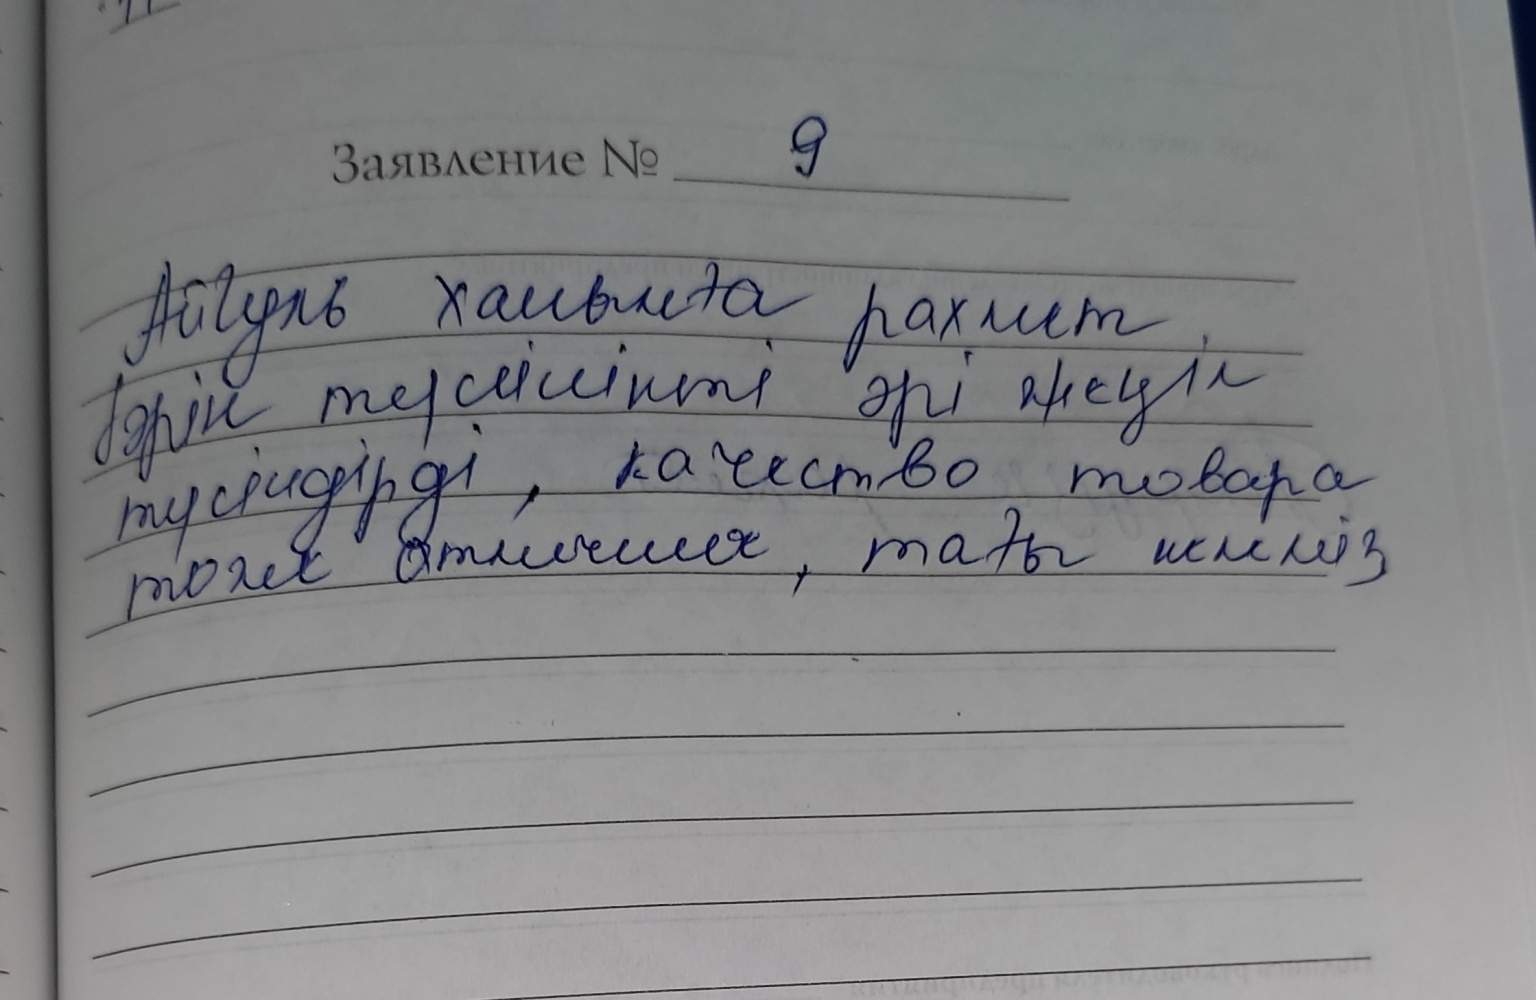 Заявление № 9
Айгуль ханымға рахмет,
бәрін түсінікті әрі жеңіл
түсіндірді, качество товара
тоже отличное, тағы келеміз